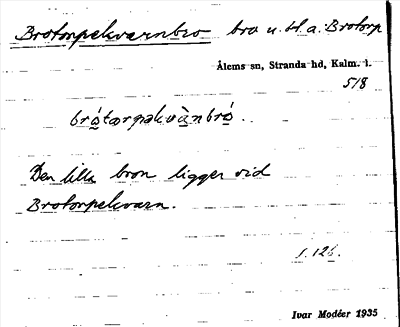 Brotorpekvarnbro bro u. bl. a. Brotorp
Ålems sn, Stranda hd, Kalm. l.
518
brötarpakvànbrö.
Den lilla bron ligger vid
Brotorpekvarn.
1.126.
Ivar Modéer 1935